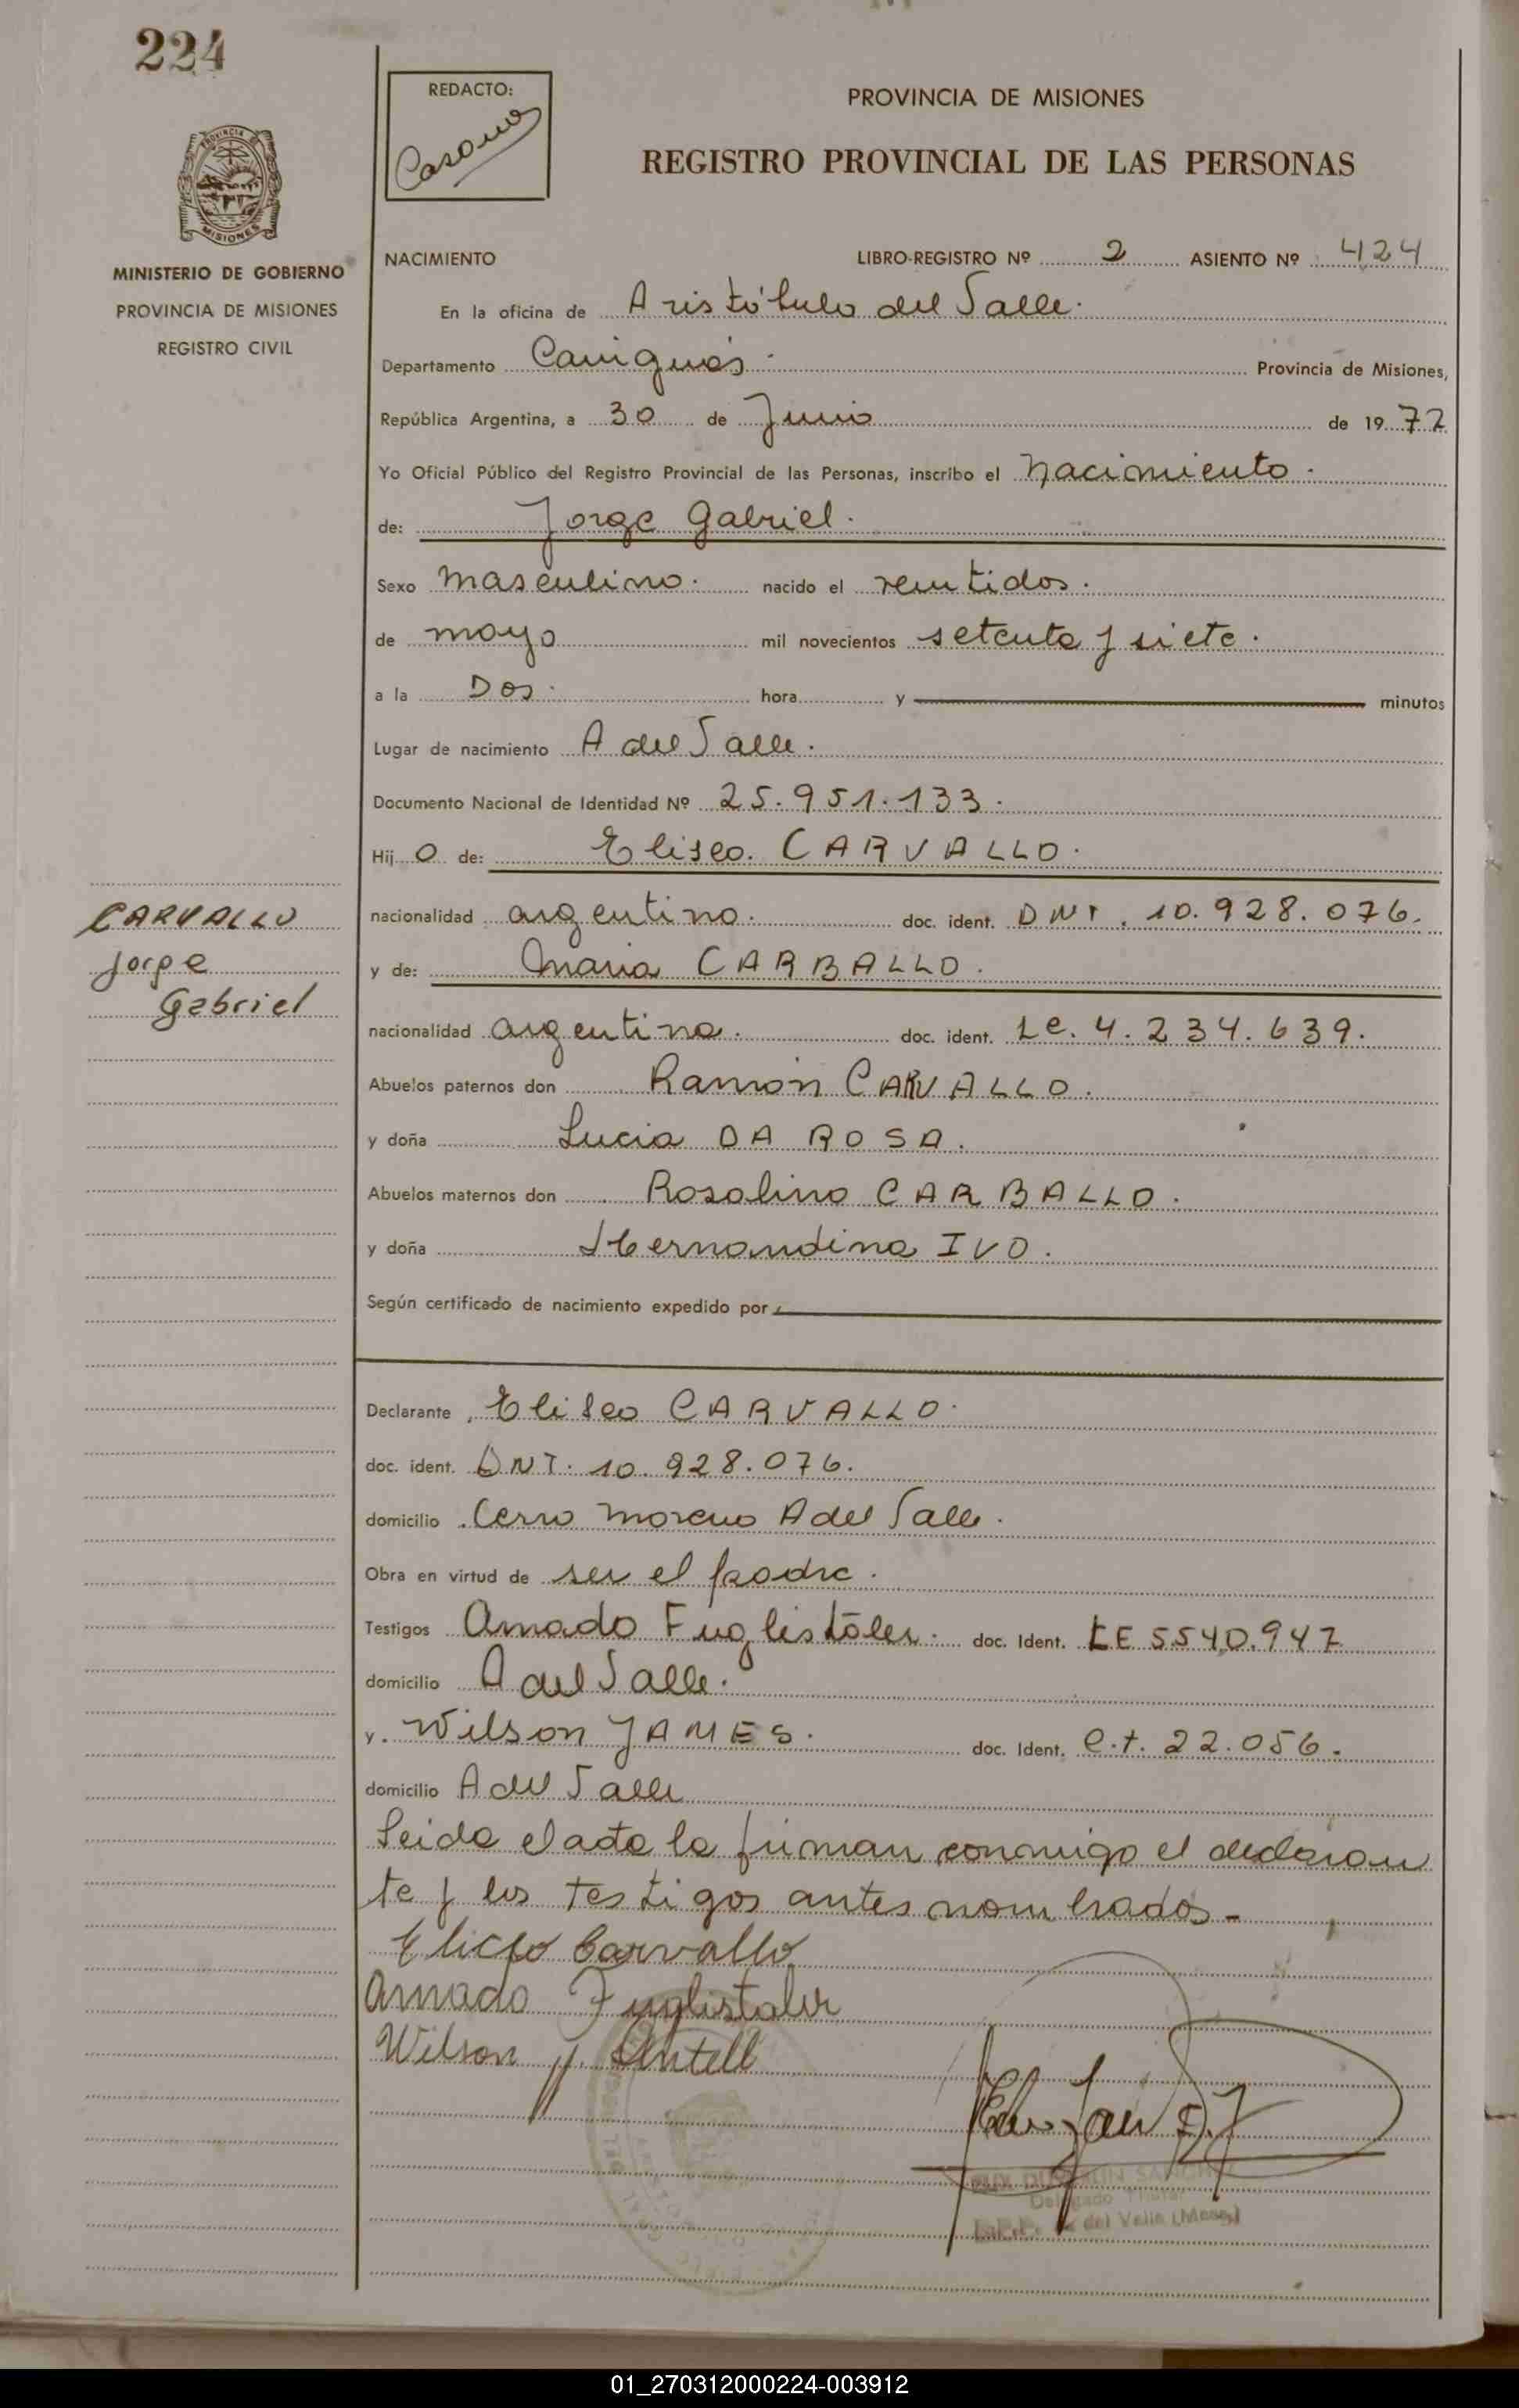 224
REDACTO:
PROVINCIA DE MISIONES
REGISTRO PROVINCIAL DE LAS PERSONAS
PROVINCIA
MISIONES
MINISTERIO DE GOBIERNO
PROVINCIA DE MISIONES
REGISTRO CIVIL
NACIMIENTO LIBRO-REGISTRO Nº 2 ASIENTO Nº 424
En la oficina de Aristóbulo del Valle.
Departamento Cainguás. Provincia de Misiones,
República Argentina, a 30 de Junio de 1977
Yo Oficial Público del Registro Provincial de las Personas, inscribo el nacimiento.
de: Jorge Gabriel.
Sexo masculino. nacido el veintidos.
de mayo mil novecientos setenta y siete.
a la Dos. hora y minutos
Lugar de nacimiento A del Valle.
Documento Nacional de Identidad Nº 25.951.133.
Hij o de: Eliseo. CARVALLO.
CARVALLO
Jorge
Gabriel
nacionalidad argentino. doc. ident. DNI. 10.928.076.
y de: Maria CARBALLO.
nacionalidad argentina. doc. ident. Lc. 4.234.639.
Abuelos paternos don Ramón CARVALLO.
y doña Lucia DA ROSA.
Abuelos maternos don Rosalino CARBALLO.
y doña Hernandina IVO.
Según certificado de nacimiento expedido por
Declarante Eliseo CARVALLO.
doc. ident. DNI. 10.928.076.
domicilio Cerro Moreno A del Valle.
Obra en virtud de ser el padre.
Testigos Amado Fuglistäler. doc. Ident. LE 5540.947
domicilio A del Valle.
y. Wilson JAMES. doc. Ident. C.I. 22.056.
domicilio A del Valle
Leida el acta la firman conmigo el declaran
te y los testigos antes nombrados.-
Eliceo Carvallo
Amado Fuglistaler
Wilson J.
Delegado Titular
del Valle (Mnes)
01_270312000224-003912